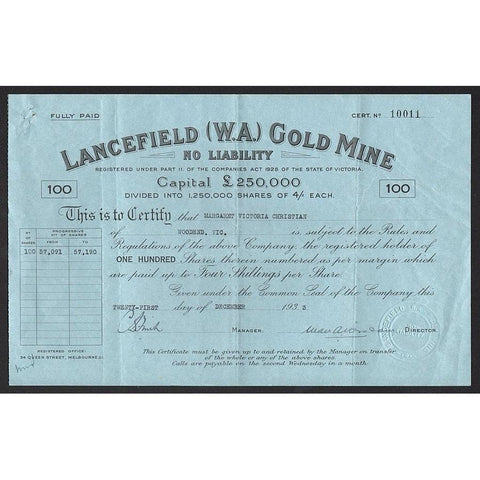 FULLY PAID
CERT. Nº 10011
LANCEFIELD (W.A.) GOLD MINE
NO LIABILITY
REGISTERED UNDER PART II. OF THE COMPANIES ACT 1928 OF THE STATE OF VICTORIA.
100
Capital £250,000
100
DIVIDED INTO 1,250,000 SHARES OF 4/- EACH.
This is to Certify that MARGARET VICTORIA CHRISTIAN
of WOODEND, VIC. is subject to the Rules and
Regulations of the above Company, the registered holder of
ONE HUNDRED Shares therein numbered as per margin which
are paid up to Four Shillings per Share.
Given under the Common Seal of the Company this
TWENTY-FIRST day of DECEMBER 1933
MANAGER.
DIRECTOR.
This Certificate must be given up to and retained by the Manager on transfer
of the whole or any of the above shares.
Calls are payable on the second Wednesday in a month.
Nº OF SHARES
PROGRESSIVE Nº OF SHARES
FROM
TO
100 37,091 37,190
REGISTERED OFFICE:
34 QUEEN STREET, MELBOURNE